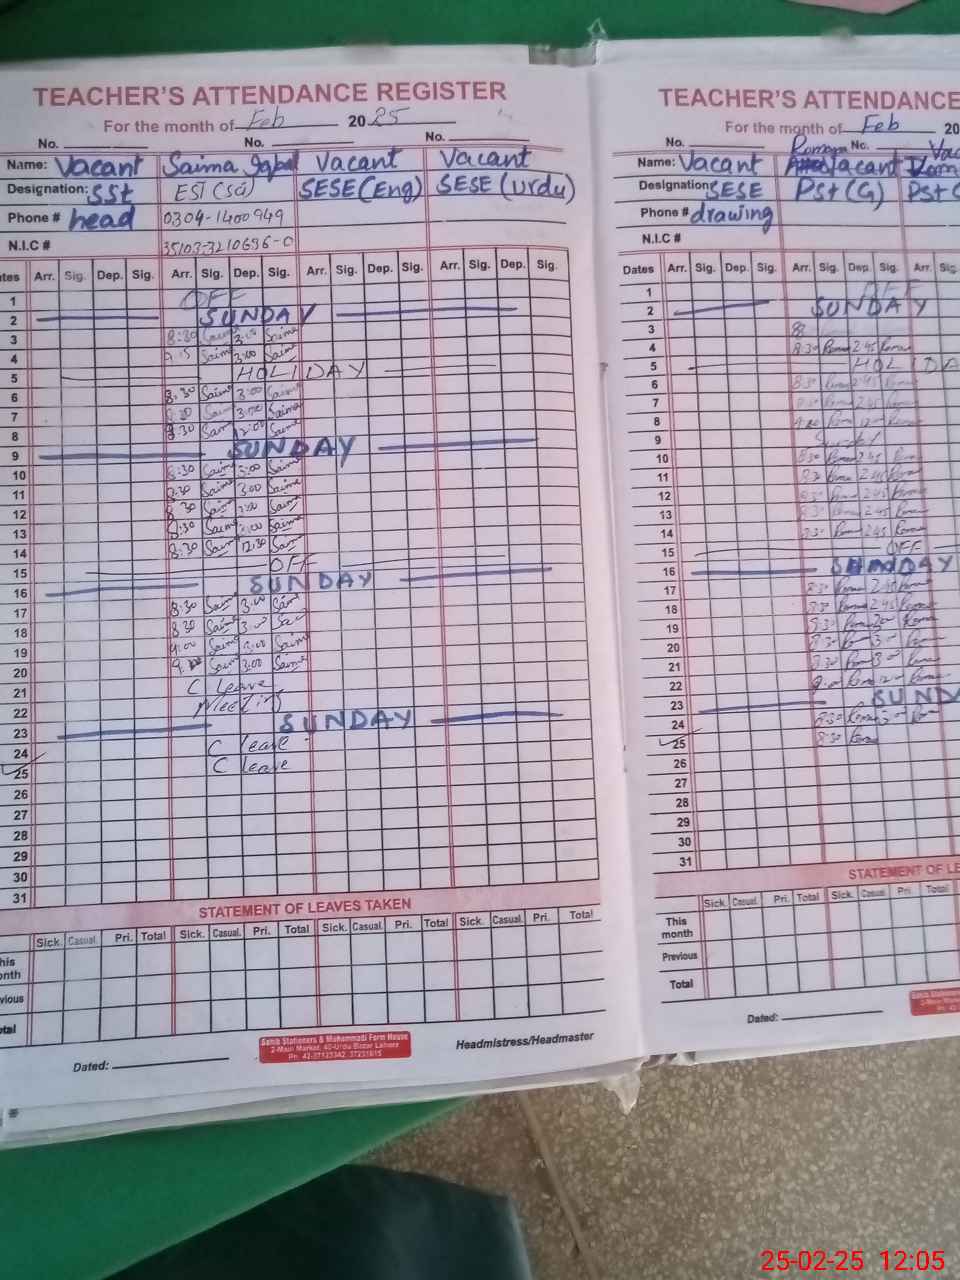 TEACHER'S ATTENDANCE REGISTER
For the month of Feb 2025
No. No. No.
Name: Vacant Saima Iqbal Vacant Vacant
Designation: SSt EST (Sci) SESE (Eng) SESE (Urdu)
Phone # head 0304-1400949
N.I.C # 35103-3210696-0
Dates Arr. Sig. Dep. Sig. Arr. Sig. Dep. Sig. Arr. Sig. Dep. Sig. Arr. Sig. Dep. Sig.
1 OFF
2 SUNDAY
3 8:30 Saima 3:00 Saima
4 9:15 Saima 3:00 Saima
5 HOLIDAY
6 8:30 Saima 3:00 Saima
7 8:30 Saima 3:00 Saima
8 8:30 Saima 12:00 Saima
9 SUNDAY
10 8:30 Saima 3:00 Saima
11 8:30 Saima 3:00 Saima
12 8:30 Saima 3:00 Saima
13 8:30 Saima 3:00 Saima
14 8:30 Saima 12:30 Saima
15 OFF
16 SUNDAY
17 8:30 Saima 3:00 Saima
18 8:30 Saima 3:00 Sai
19 9:00 Saima 3:00 Saima
20 9:00 Saima 3:00 Saima
21 C Leave
22 Meeting
23 SUNDAY
24 C leave
25 C leave
26
27
28
29
30
31
STATEMENT OF LEAVES TAKEN
Sick. Casual. Pri. Total Sick. Casual. Pri. Total Sick. Casual. Pri. Total Sick. Casual. Pri. Total
his
onth
vious
otal
Sahib Stationers & Muhammadi Form House
2-Main Market, 40-Urdu Bazar Lahore
Dated: Headmistress/Headmaster
TEACHER'S ATTENDANCE
For the month of Feb 20
No. No.
Name: Vacant Vacant Vac
Designation: SESE PSt (G) PSt
Phone # drawing
N.I.C #
Dates Arr. Sig. Dep. Sig. Arr. Sig. Dep. Sig. Arr. Sig.
1 OFF
2 SUNDAY
3
4 8:30 Roma 2:45 Roma
5 HOLIDA
6 8:30 Roma 2:45 Roma
7 8:30 Roma 2:45 Roma
8 9:00 Roma 12:00 Roma
9 Sunday
10 8:30 Roma 2:45 Roma
11 8:30 Roma 2:45 Roma
12 8:30 Roma 2:45 Roma
13 8:30 Roma 2:45 Roma
14 8:30 Roma 2:45 Roma
15 OFF
16 SUNDAY
17 8:30 Roma 2:45 Roma
18 8:30 Roma 2:45 Roma
19 8:30 Roma Roma
20 8:30 Roma 3:00 Roma
21 8:30 Roma 3:00 Roma
22 9:00 Roma 12:00 Roma
23 SUND
24 8:30 Roma 3:00 Roma
25 8:30 Roma
26
27
28
29
30
31
STATEMENT OF LE
Sick. Casual. Pri. Total Sick. Casual. Pri. Total
This
month
Previous
Total
Dated:
25-02-25 12:05